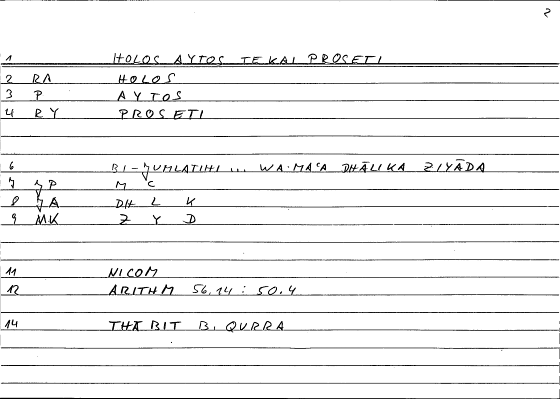 2
1 HOLOS AYTOS TE KAI PROSETI
2 RA HOLOS
3 P AYTOS
4 RY PROSETI
6 BI-ʒUMLATIHI ... WA-MAʿA DHĀLIKA ZIYĀDA
7 ʒP M C
8 ʒA DH L K
9 MK Z Y D
11 NICOM
12 ARITHM 56.14 : 50.4
14 THĀBIT B. QURRA